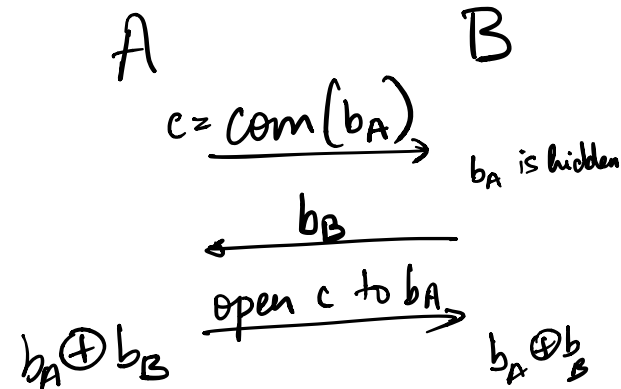 A B
c = com(b_A)
b_A is hidden
b_B
open c to b_A
b_A ⊕ b_B b_A ⊕ b_B